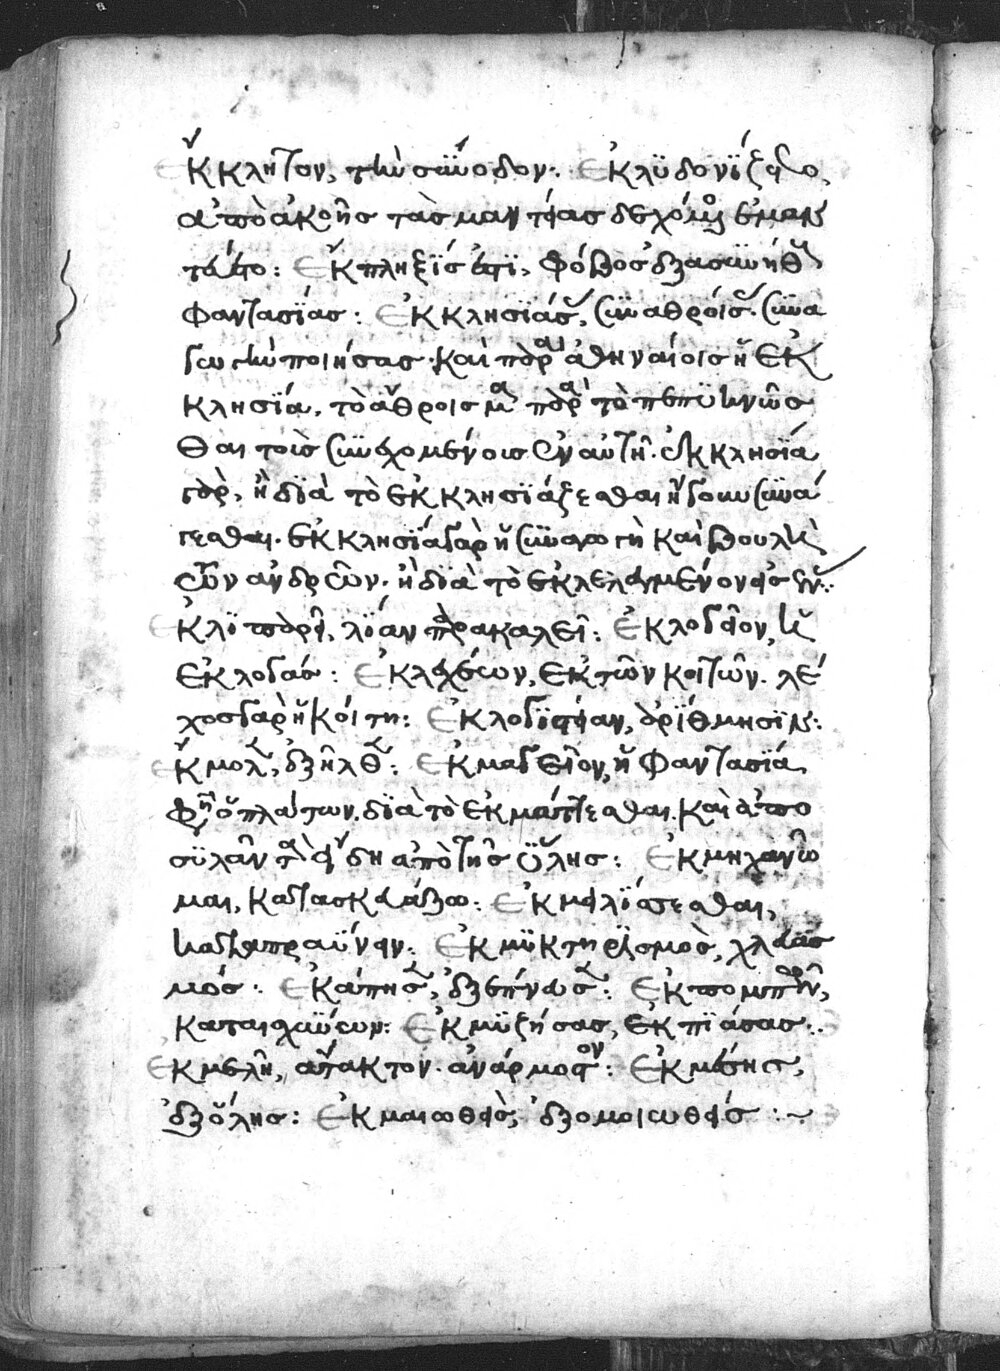 Ἔκκλητον, τὴν σύνοδον: Ἐκλυδονίζετο,
ἀπὸ ἀκοῆς τὰς μαντείας δεχόμενος ἐμαν
τεύετο: Ἔκπληξίς ἐστι, φόβος ἐξ ἀσυνήθους
φαντασίας: Ἐκκλησιάσας, συναθροίσας. συνα
γωγὴν ποιήσας. καὶ παρὰ ἀθηναίοις ἡ ἐκ
κλησία, τὸ ἄθροισμα παρὰ τὸ
θαι τοῖς συνερχομένοις ἐν αὐτῇ. ἐκκλησία
γὰρ, ἢ διὰ τὸ ἐκκλησιάζεσθαι ἤγουν συνά
γεσθαι. ἐκκλησία γὰρ ἡ συναγωγὴ καὶ βουλὴ
τῶν ἀνδρῶν. ἢ διὰ τὸ ἐκλελεγμένον εἰς
Ἐκλιπαρεῖ, λίαν παρακαλεῖ: Ἐκλογεῖον,
ἐκλογάς: Ἐκ λεχέων, ἐκ τῶν κοιτῶν. λέ
χος γὰρ ἡ κοίτη: Ἐκλογιστείαν, ἀρίθμησιν:
Ἔκμολεν, ἐξῆλθεν: Ἐκμαγεῖον, ἡ φαντασία
φησὶν ὁ πλάτων. διὰ τὸ ἐκμάττεσθαι καὶ ἀπο
συλᾶν τὰ εἴδη ἀπὸ τῆς ὕλης: Ἐκμηχανῶ
μαι, κατασκευάζω: Ἐκμειλίσσεσθαι,
καταπραΰνειν: Ἐκμυκτηρισμὸς, χλευασ
μός: Ἐκάπησεν, ἐξέπνευσεν: Ἐκπομπεύων,
καταισχύνων: Ἐκμυζήσας, ἐκπιάσας:
Ἐκμελῆ, ἄτακτον. ἀνάρμοστον: Ἐκ μέσης,
ἐξ ὅλης: Ἐκμαιωθεὶς, ἐξομοιωθείς :~